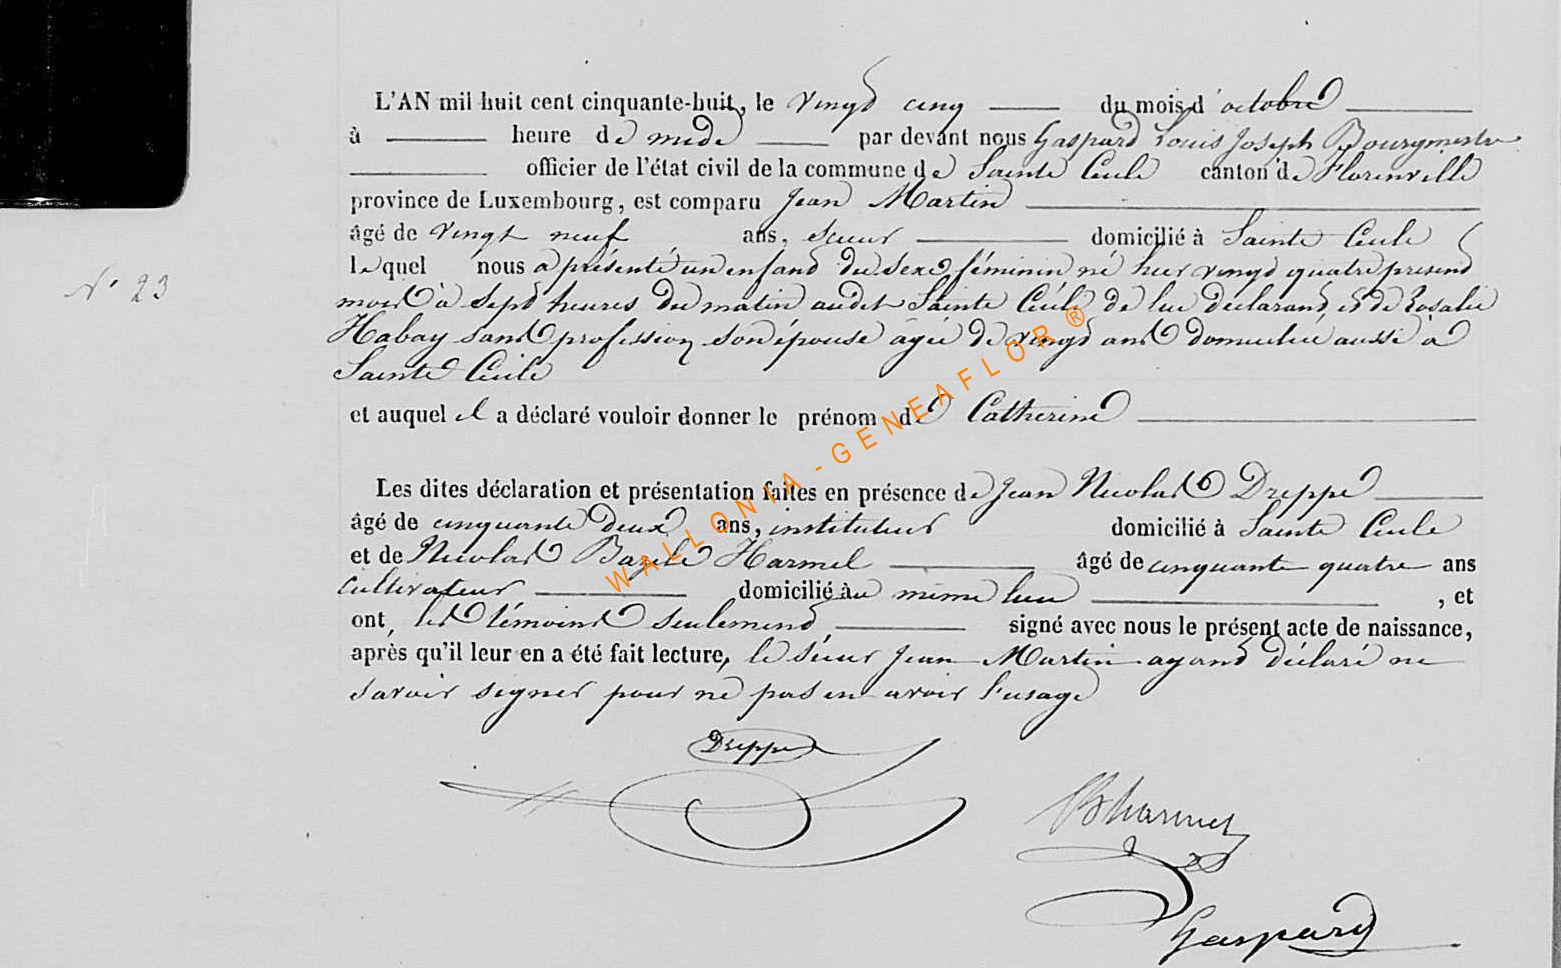 L'AN mil huit cent cinquante-huit, le vingt cinq du mois d'octobre
à heure de midi par devant nous Gaspard Louis Joseph Bourgmestre
officier de l'état civil de la commune de Sainte Cécile canton de Florenville
province de Luxembourg, est comparu Jean Martin
âgé de vingt neuf ans, scieur domicilié à Sainte Cécile
lequel nous a présenté un enfant du sexe féminin né hier vingt quatre présent
N° 23
mois à sept heures du matin audit Sainte Cécile de lui déclarant et de Rosalie
Habay sans profession son épouse agée de vingt ans domiciliée aussi à
Sainte Cécile
et auquel il a déclaré vouloir donner le prénom de Catherine
Les dites déclaration et présentation faites en présence de Jean Nicolas Dreppe
âgé de cinquante deux ans, instituteur domicilié à Sainte Cécile
et de Nicolas Bazile Harmel âgé de cinquante quatre ans
cultivateur domicilié au même lieu , et
ont les témoins seulement signé avec nous le présent acte de naissance,
après qu'il leur en a été fait lecture, le sieur Jean Martin ayant déclaré ne
savoir signer pour ne pas en avoir l'usage
Dreppe
BHarmel
Gaspard
WALLONIA-GENEAFLOR®